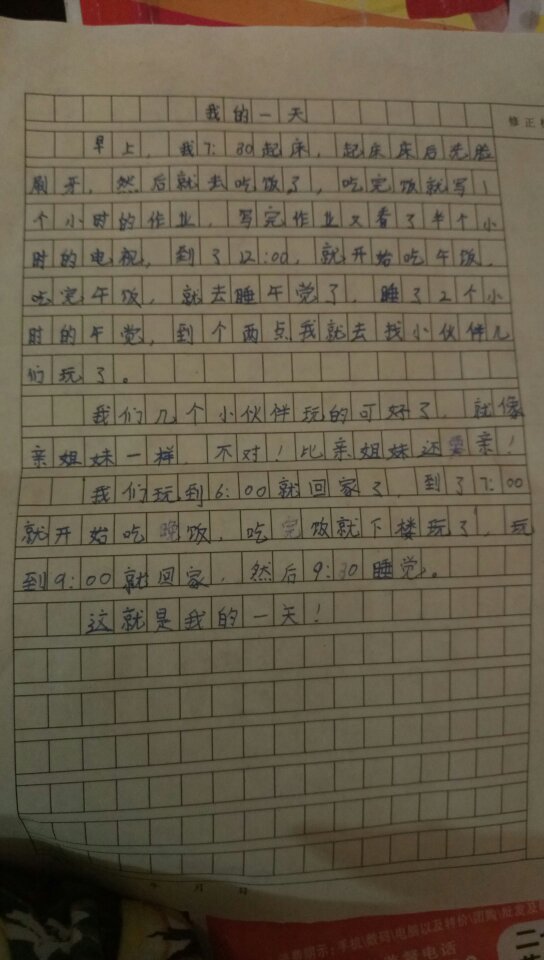 我的一天
修正
早上，我7:30起床，起床床后洗脸
刷牙，然后就去吃饭了，吃完饭就写1
个小时的作业，写完作业又看了半个小
时的电视，到了12:00，就开始吃午饭，
吃完午饭，就去睡午觉了，睡了2个小
时的午觉，到个两点我就去找小伙伴儿
们玩了。
我们几个小伙伴玩的可好了，就像
亲姐妹一样，不对！比亲姐妹还要亲！
我们玩到6:00就回家了，到了7:00
就开始吃晚饭，吃完饭就下楼玩了，玩
到9:00就回家，然后9:30睡觉。
这就是我的一天！
年 月 日
提示：手机\数码\电脑以及特价\团购\批发及
电话
二